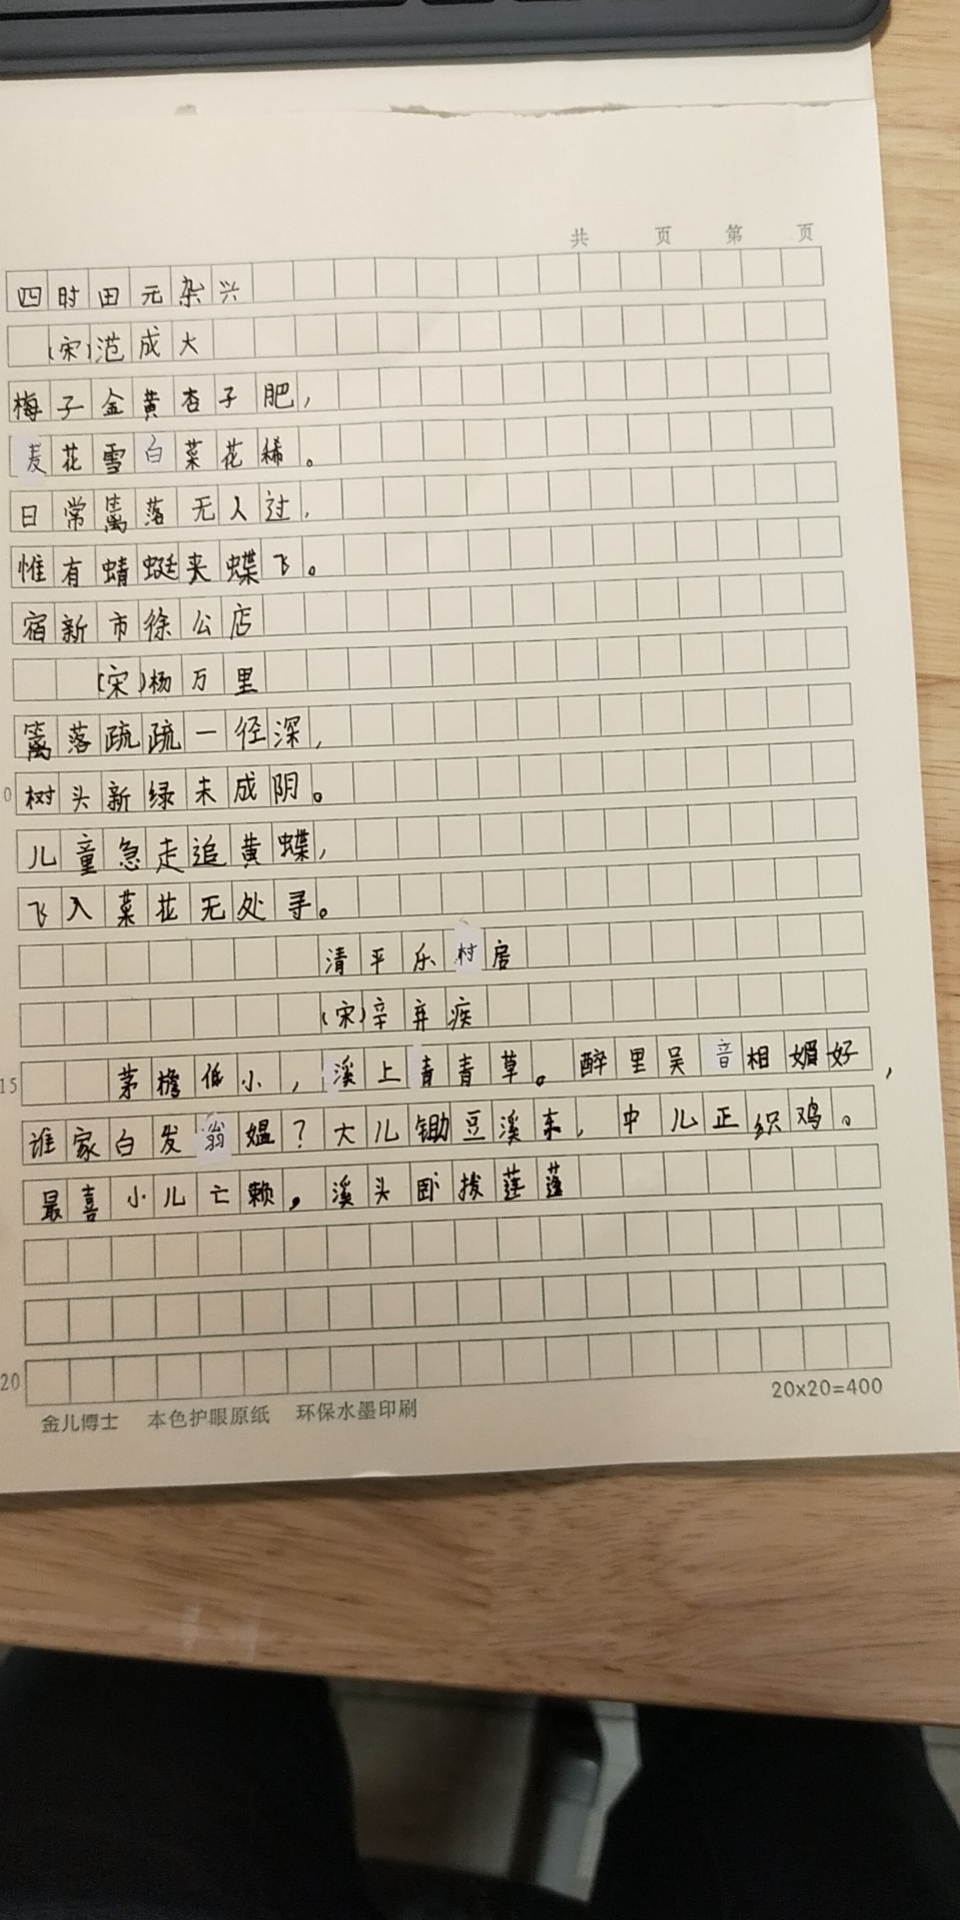 共 页 第 页
四时田元杂兴
(宋)范成大
梅子金黄杏子肥,
麦花雪白菜花稀。
日常篱落无人过,
惟有蜻蜓夹蝶飞。
宿新市徐公店
(宋)杨万里
篱落疏疏一径深,
树头新绿未成阴。
儿童急走追黄蝶,
飞入菜花无处寻。
清平乐村居
(宋)辛弃疾
茅檐低小,溪上青青草。醉里吴音相媚好,
15
谁家白发翁媪?大儿锄豆溪东,中儿正织鸡。
最喜小儿亡赖,溪头卧拨莲蓬
20
20x20=400
金儿博士 本色护眼原纸 环保水墨印刷